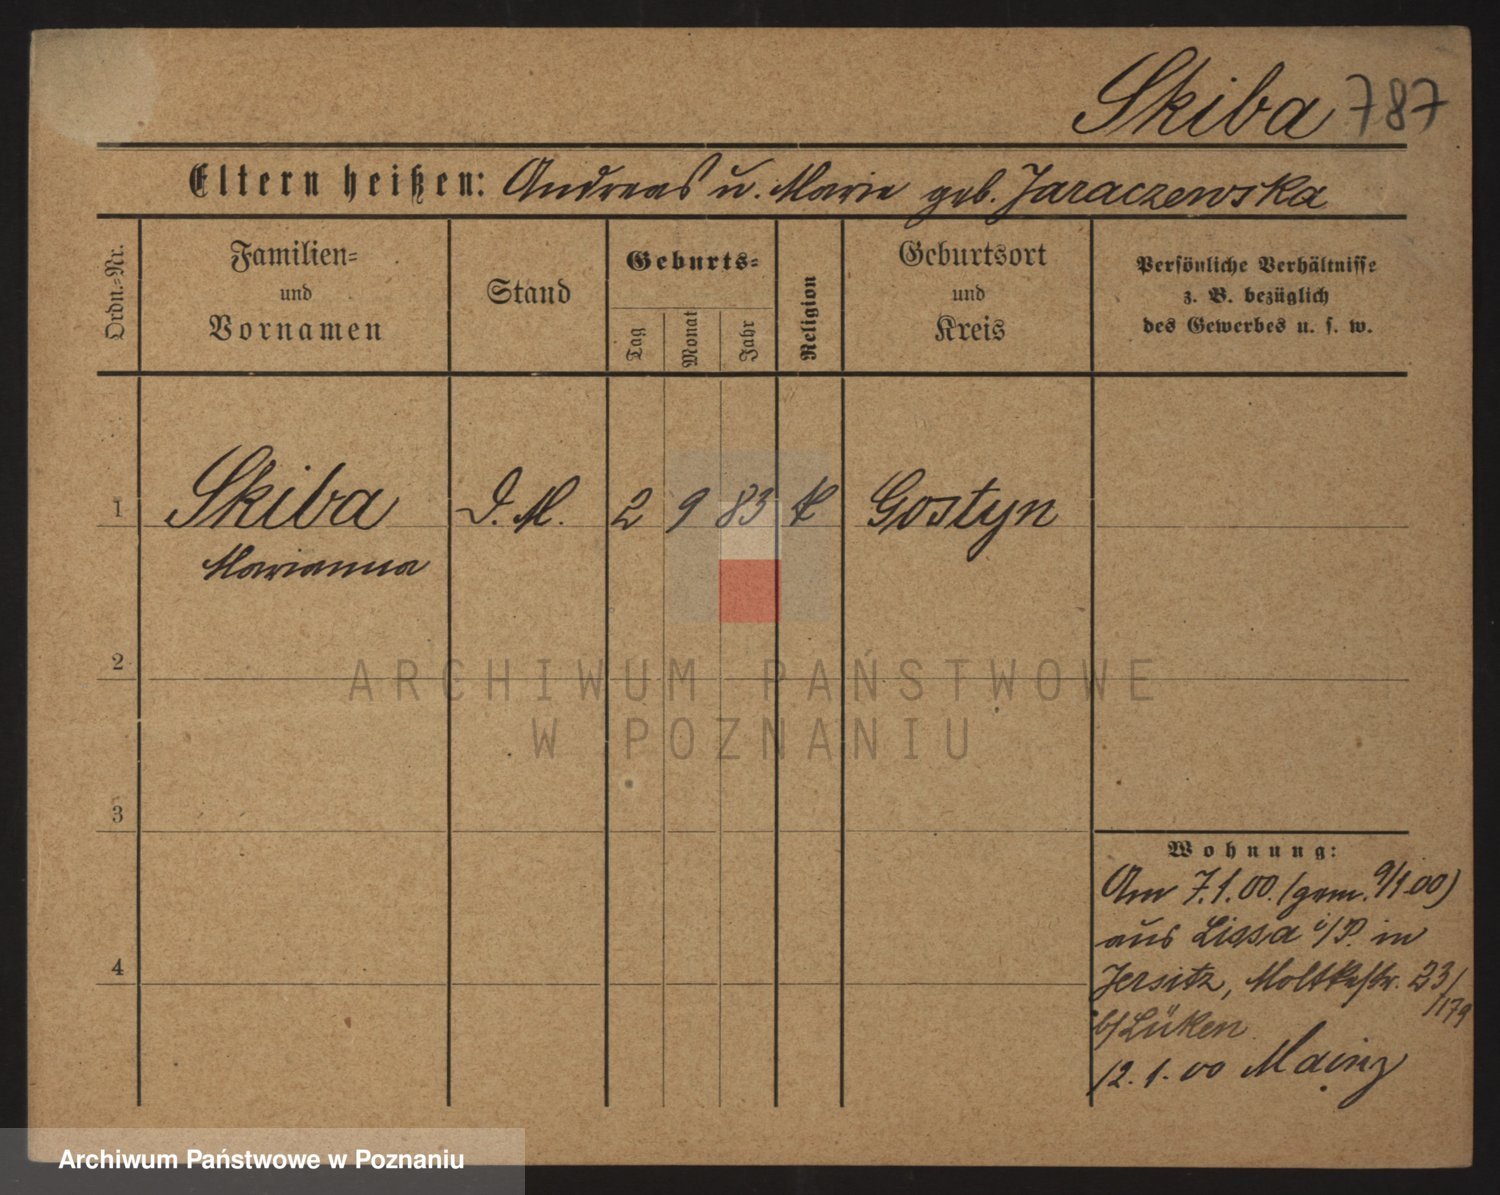 Skiba 787
Eltern heißen: Andreas u. Marie geb. Jaraczewska
Ordn.-Nr.
Familien-
und
Vornamen
Stand
Geburts-
Tag
Monat
Jahr
Religion
Geburtsort
und
Kreis
Persönliche Verhältnisse
z. B. bezüglich
des Gewerbes u. s. w.
1 Skiba D. M. 2 9 83 K Gostyn
Marianna
2
3
4
Wohnung:
Am 7.1.00. (gem. 9/1.00)
aus Lissa i/P. in
Jersitz, Moltkestr. 23/
/179
b/ Lüken
12. 1. 00 Mainz
ARCHIWUM PAŃSTWOWE
W POZNANIU
Archiwum Państwowe w Poznaniu